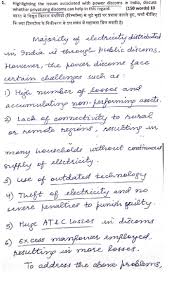 Highlighting the issues associated with power discoms in India, discuss
whether privatizing discoms can help in this regard. (150 words) 10
Majority of electricity distributed
in India is through public discoms.
However, the power discoms face
certain challenges such as :
1) High number of losses and
accumulating non-performing assets.
2) Lack of connectivity to rural
or remote regions, resulting in
many households without continuous
supply of electricity.
3) Use of outdated technology
4) Theft of electricity and no
severe penalties to punish guilty.
5) Huge AT&C losses in discoms
6) Excess manpower employed,
resulting in more losses.
To address the above problems,